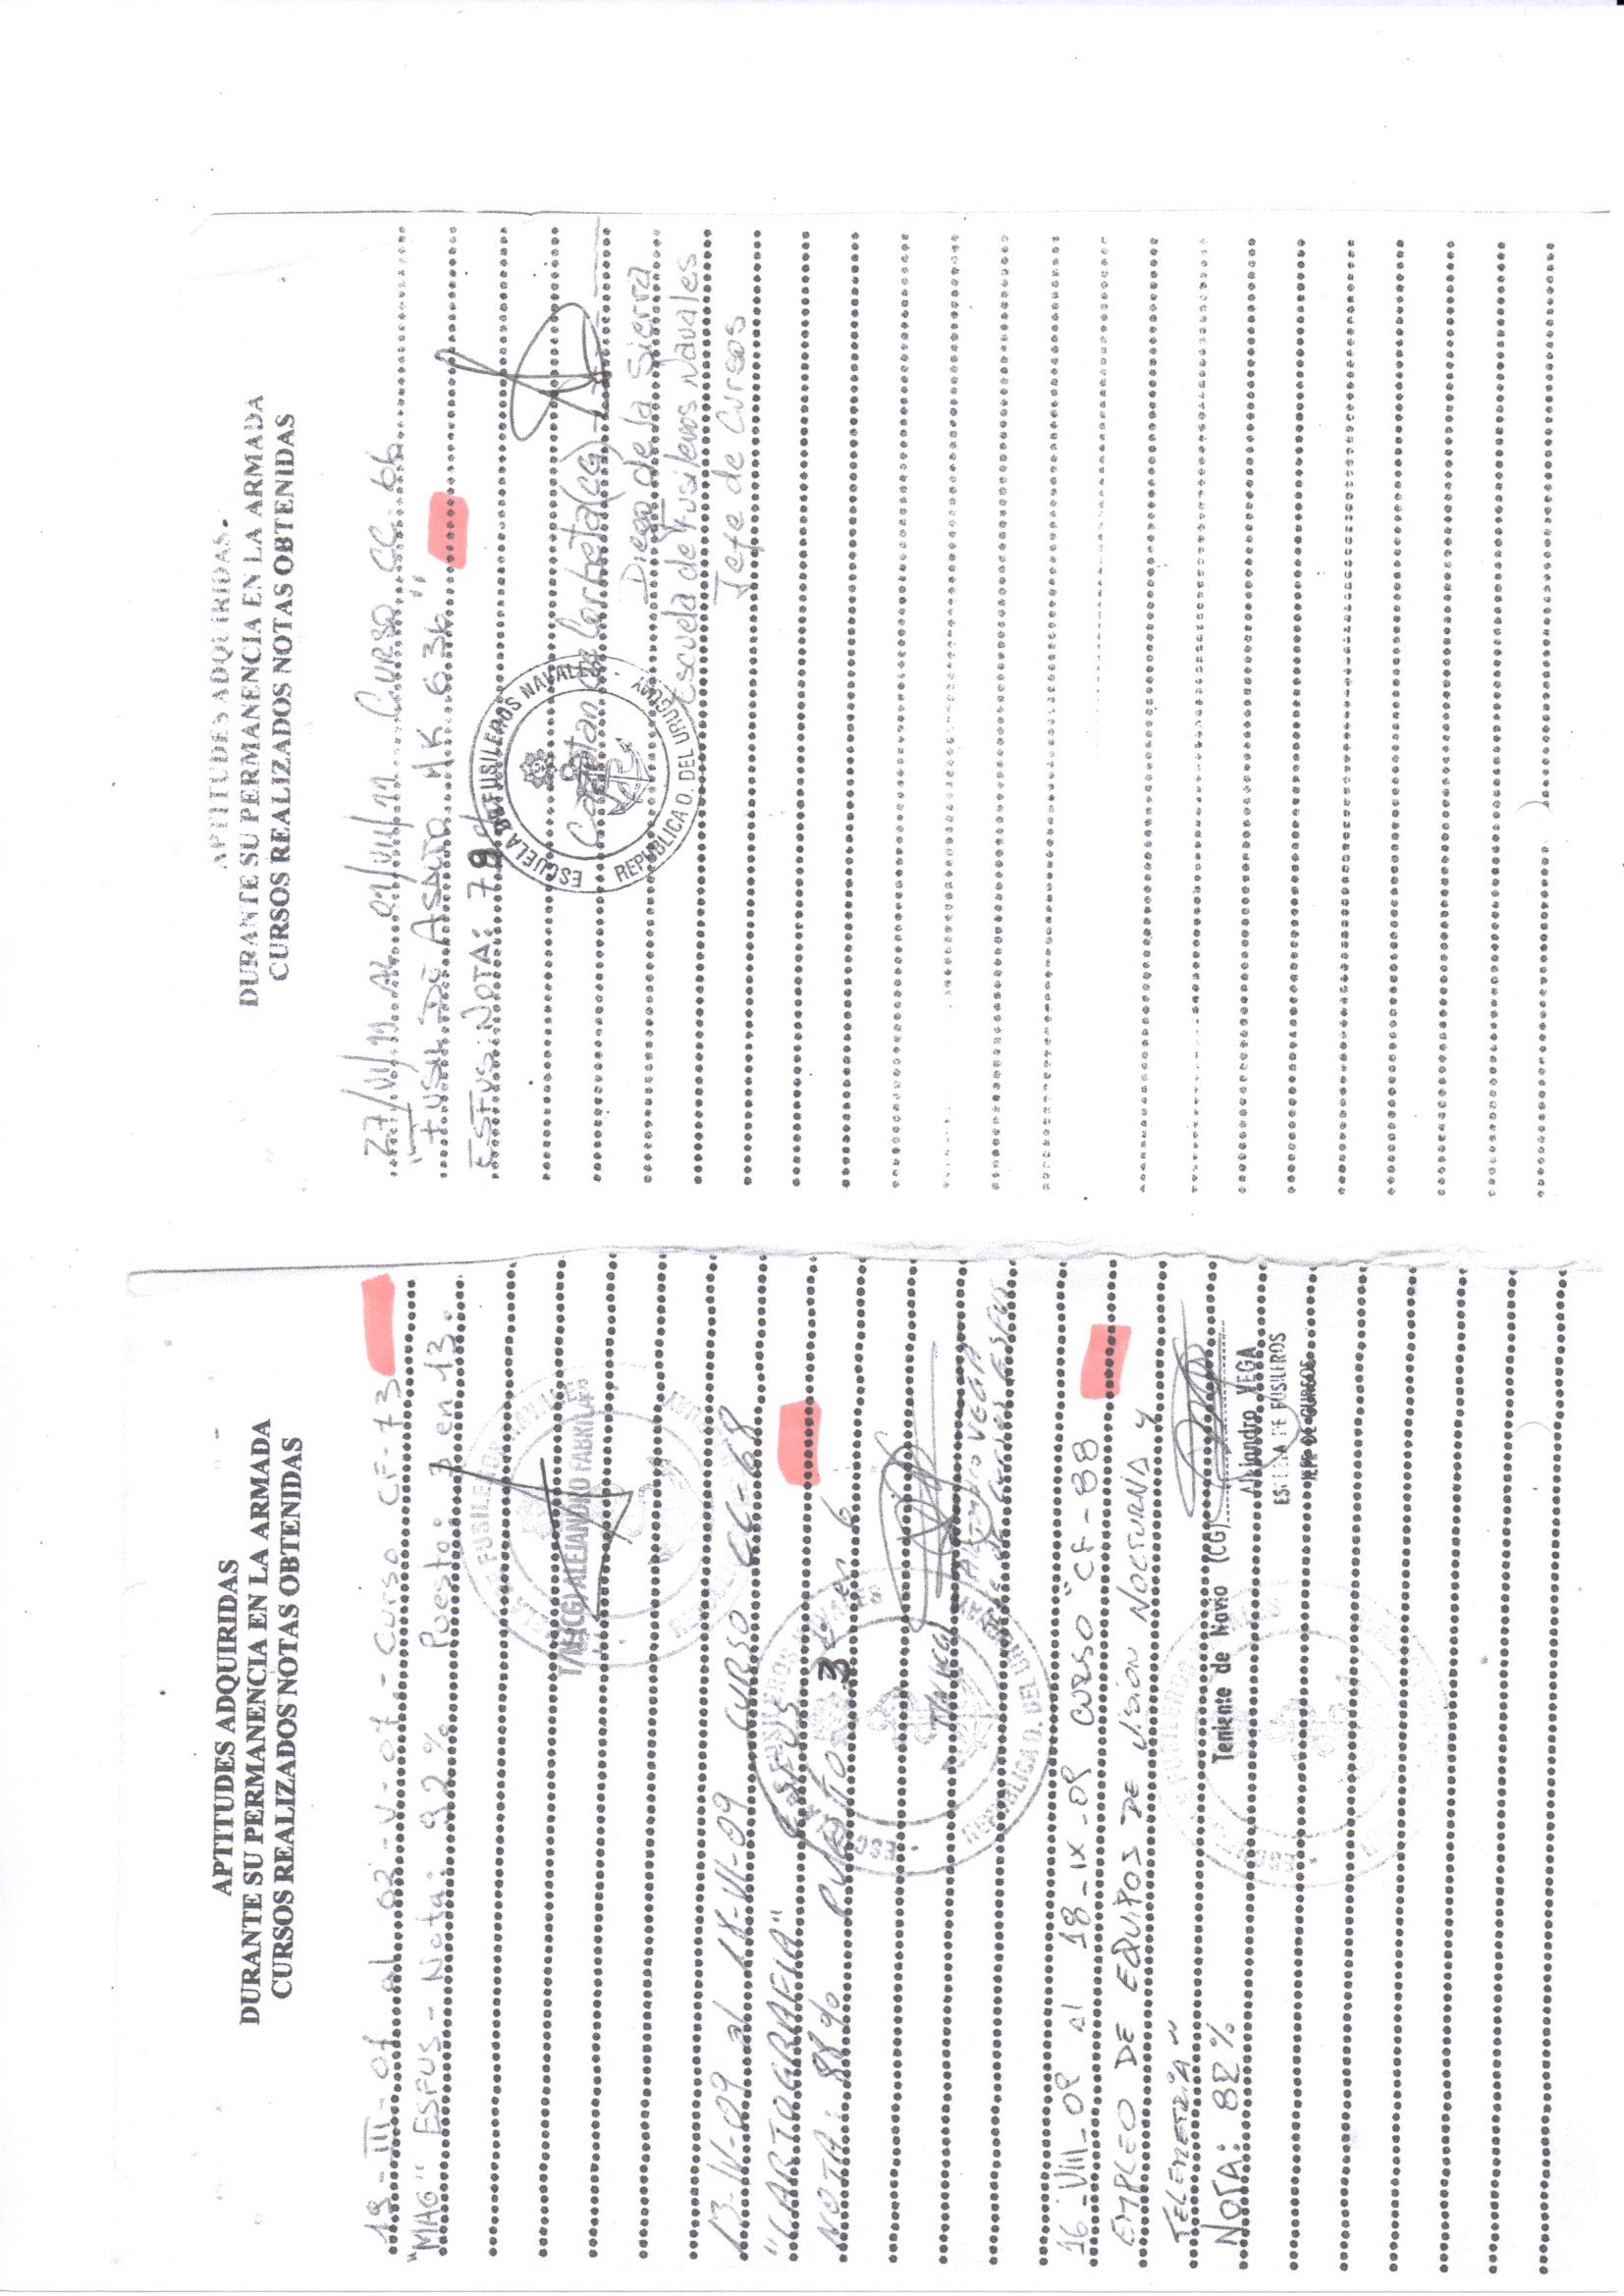 APTITUDES ADQUIRIDAS
DURANTE SU PERMANENCIA EN LA ARMADA
CURSOS REALIZADOS NOTAS OBTENIDAS
19-III-07 al 02-V-07.- Curso CF-73
"MAG" ESFUS - Nota: 92% Puesto: 3 en 13.
ESCUELA DE FUSILEROS NAVALES
T/N (CG) ALEJANDRO FABRICA
13-IV-09 al 18-VI-09 CURSO CC-68
"CARTOGRAFIA" ESFUS
NOTA: 88% PUESTO 3º en 6
ESCUELA DE FUSILEROS NAVALES
REPUBLICA O. DEL URUGUAY
T/N (CG)
Alejandro VEGA
Jefe de Cursos ESFUS
16-VIII-09 al 18-IX-09 CURSO "CF-88
EMPLEO DE EQUIPOS DE VISION NOCTURNA Y
TELEMETRIA"
NOTA: 82%
Teniente de Navio (CG)
Alejandro VEGA
ESCUELA DE FUSILEROS
JEFE DE CURSOS
APTITUDES ADQUIRIDAS
DURANTE SU PERMANENCIA EN LA ARMADA
CURSOS REALIZADOS NOTAS OBTENIDAS
27/VI/11 AL 01/VII/11 CURSO CC-66
"FUSIL DE ASALTO HK G36"
ESFUS: NOTA: 79%
ESCUELA DE FUSILEROS NAVALES
REPUBLICA O. DEL URUGUAY
Capitan de Corbeta (CG)
Diego de la Sierra
Escuela de Fusileros Navales
Jefe de Cursos